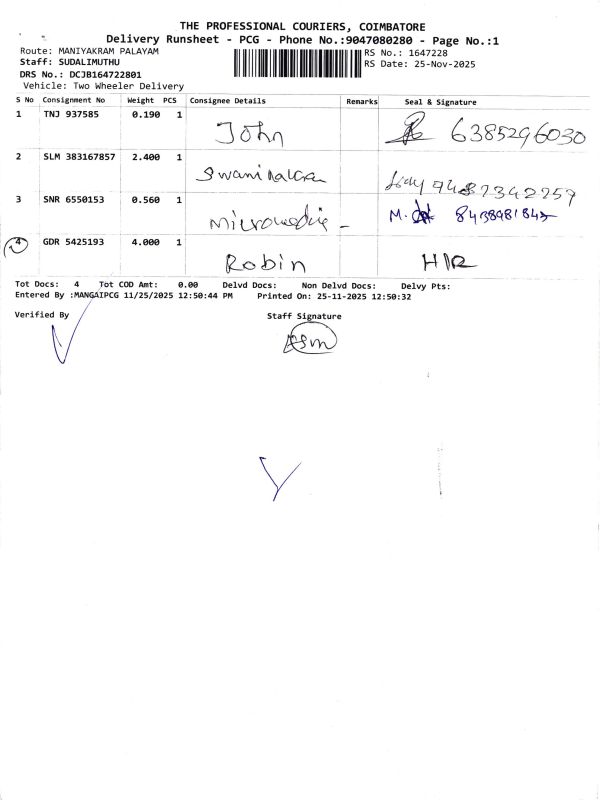 THE PROFESSIONAL COURIERS, COIMBATORE
Delivery Runsheet - PCG - Phone No.:9047080280 - Page No.:1
Route: MANIYAKRAM PALAYAM RS No.: 1647228
Staff: SUDALIMUTHU RS Date: 25-Nov-2025
DRS No.: DCJB164722801
Vehicle: Two Wheeler Delivery
S No Consignment No Weight PCS Consignee Details Remarks Seal & Signature
1 TNJ 937585 0.190 1 John 6385296030
2 SLM 383167857 2.400 1
3 SNR 6550153 0.560 1
4 GDR 5425193 4.000 1 Robin
Tot Docs: 4 Tot COD Amt: 0.00 Delvd Docs: Non Delvd Docs: Delvy Pts:
Entered By :MANGAIPCG 11/25/2025 12:50:44 PM Printed On: 25-11-2025 12:50:32
Verified By Staff Signature